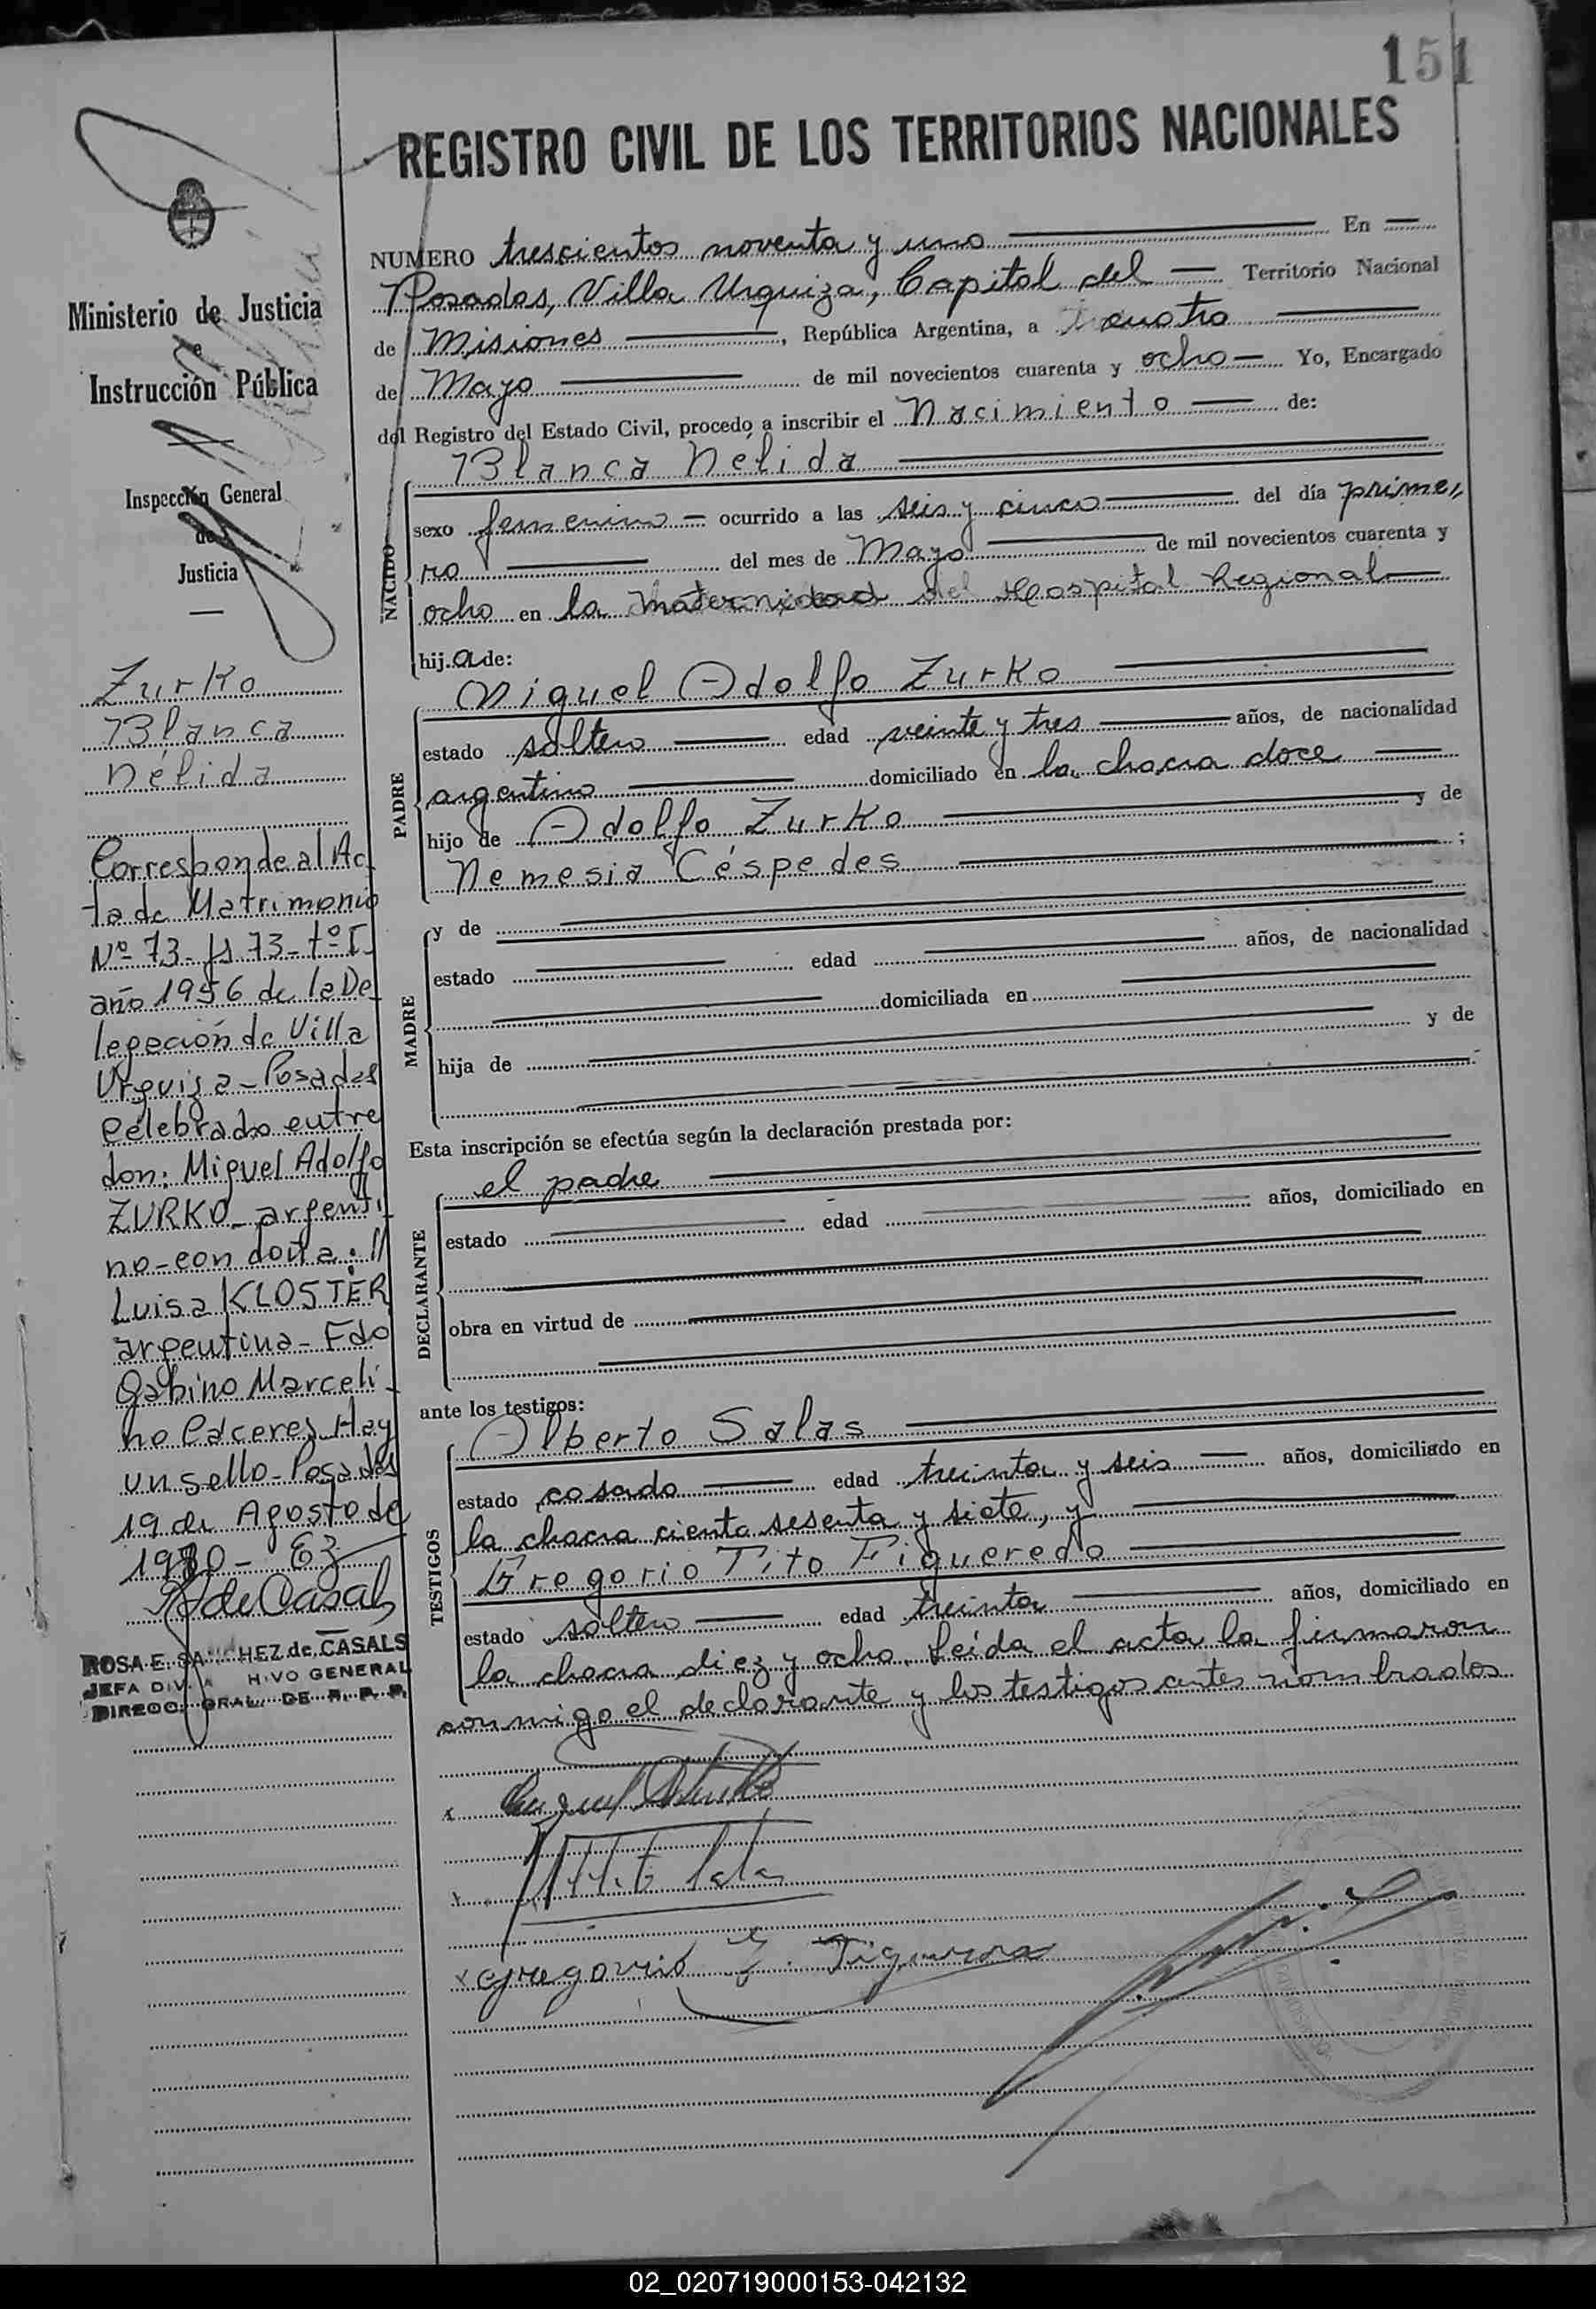 151
REGISTRO CIVIL DE LOS TERRITORIOS NACIONALES
NUMERO trescientos noventa y uno En
Posadas, Villa Urquiza, Capital del Territorio Nacional
de Misiones, República Argentina, a cuatro
de Mayo de mil novecientos cuarenta y ocho Yo, Encargado
del Registro del Estado Civil, procedo a inscribir el Nacimiento de:
Blanca Nélida
NACIDO
sexo femenino ocurrido a las seis y cinco del día prime
ro del mes de Mayo de mil novecientos cuarenta y
ocho en la maternidad del Hospital Regional
hija de:
Miguel Adolfo Zurko
PADRE
estado soltero edad veinte y tres años, de nacionalidad
argentino domiciliado en la chacra doce
hijo de Adolfo Zurko y de
Nemesia Céspedes ;
MADRE
y de
estado edad años, de nacionalidad
domiciliada en
hija de y de
Esta inscripción se efectúa según la declaración prestada por:
el padre
DECLARANTE
estado edad años, domiciliado en
obra en virtud de
ante los testigos:
Alberto Salas
TESTIGOS
estado casado edad treinta y seis años, domiciliado en
la chacra ciento sesenta y siete, y
Gregorio Tito Figueredo
estado soltero edad treinta años, domiciliado en
la chacra diez y ocho. Leída el acta la firmaron
conmigo el declarante y los testigos antes nombrados
Ministerio de Justicia
e
Instrucción Pública
Inspección General
de
Justicia
Zurko
Blanca
Nélida
Corresponde al Ac-
ta de Matrimonio
Nº 73- fs 73- tº I-
año 1956 de la De
legación de Villa
Urquiza- Posadas
celebrado entre
don: Miguel Adolfo
ZURKO- argenti-
no- con doña: //
Luisa KLOSTER
argentina- Fdo
Gabino Marceli-
no Caceres Hay
un sello- Posadas
19 de Agosto de
1980-
R S de Casals
ROSA E. SANCHEZ de CASALS
JEFA DIV. ARCHIVO GENERAL
DIRECC. GRAL. DE R. P. P.
02_020719000153-042132